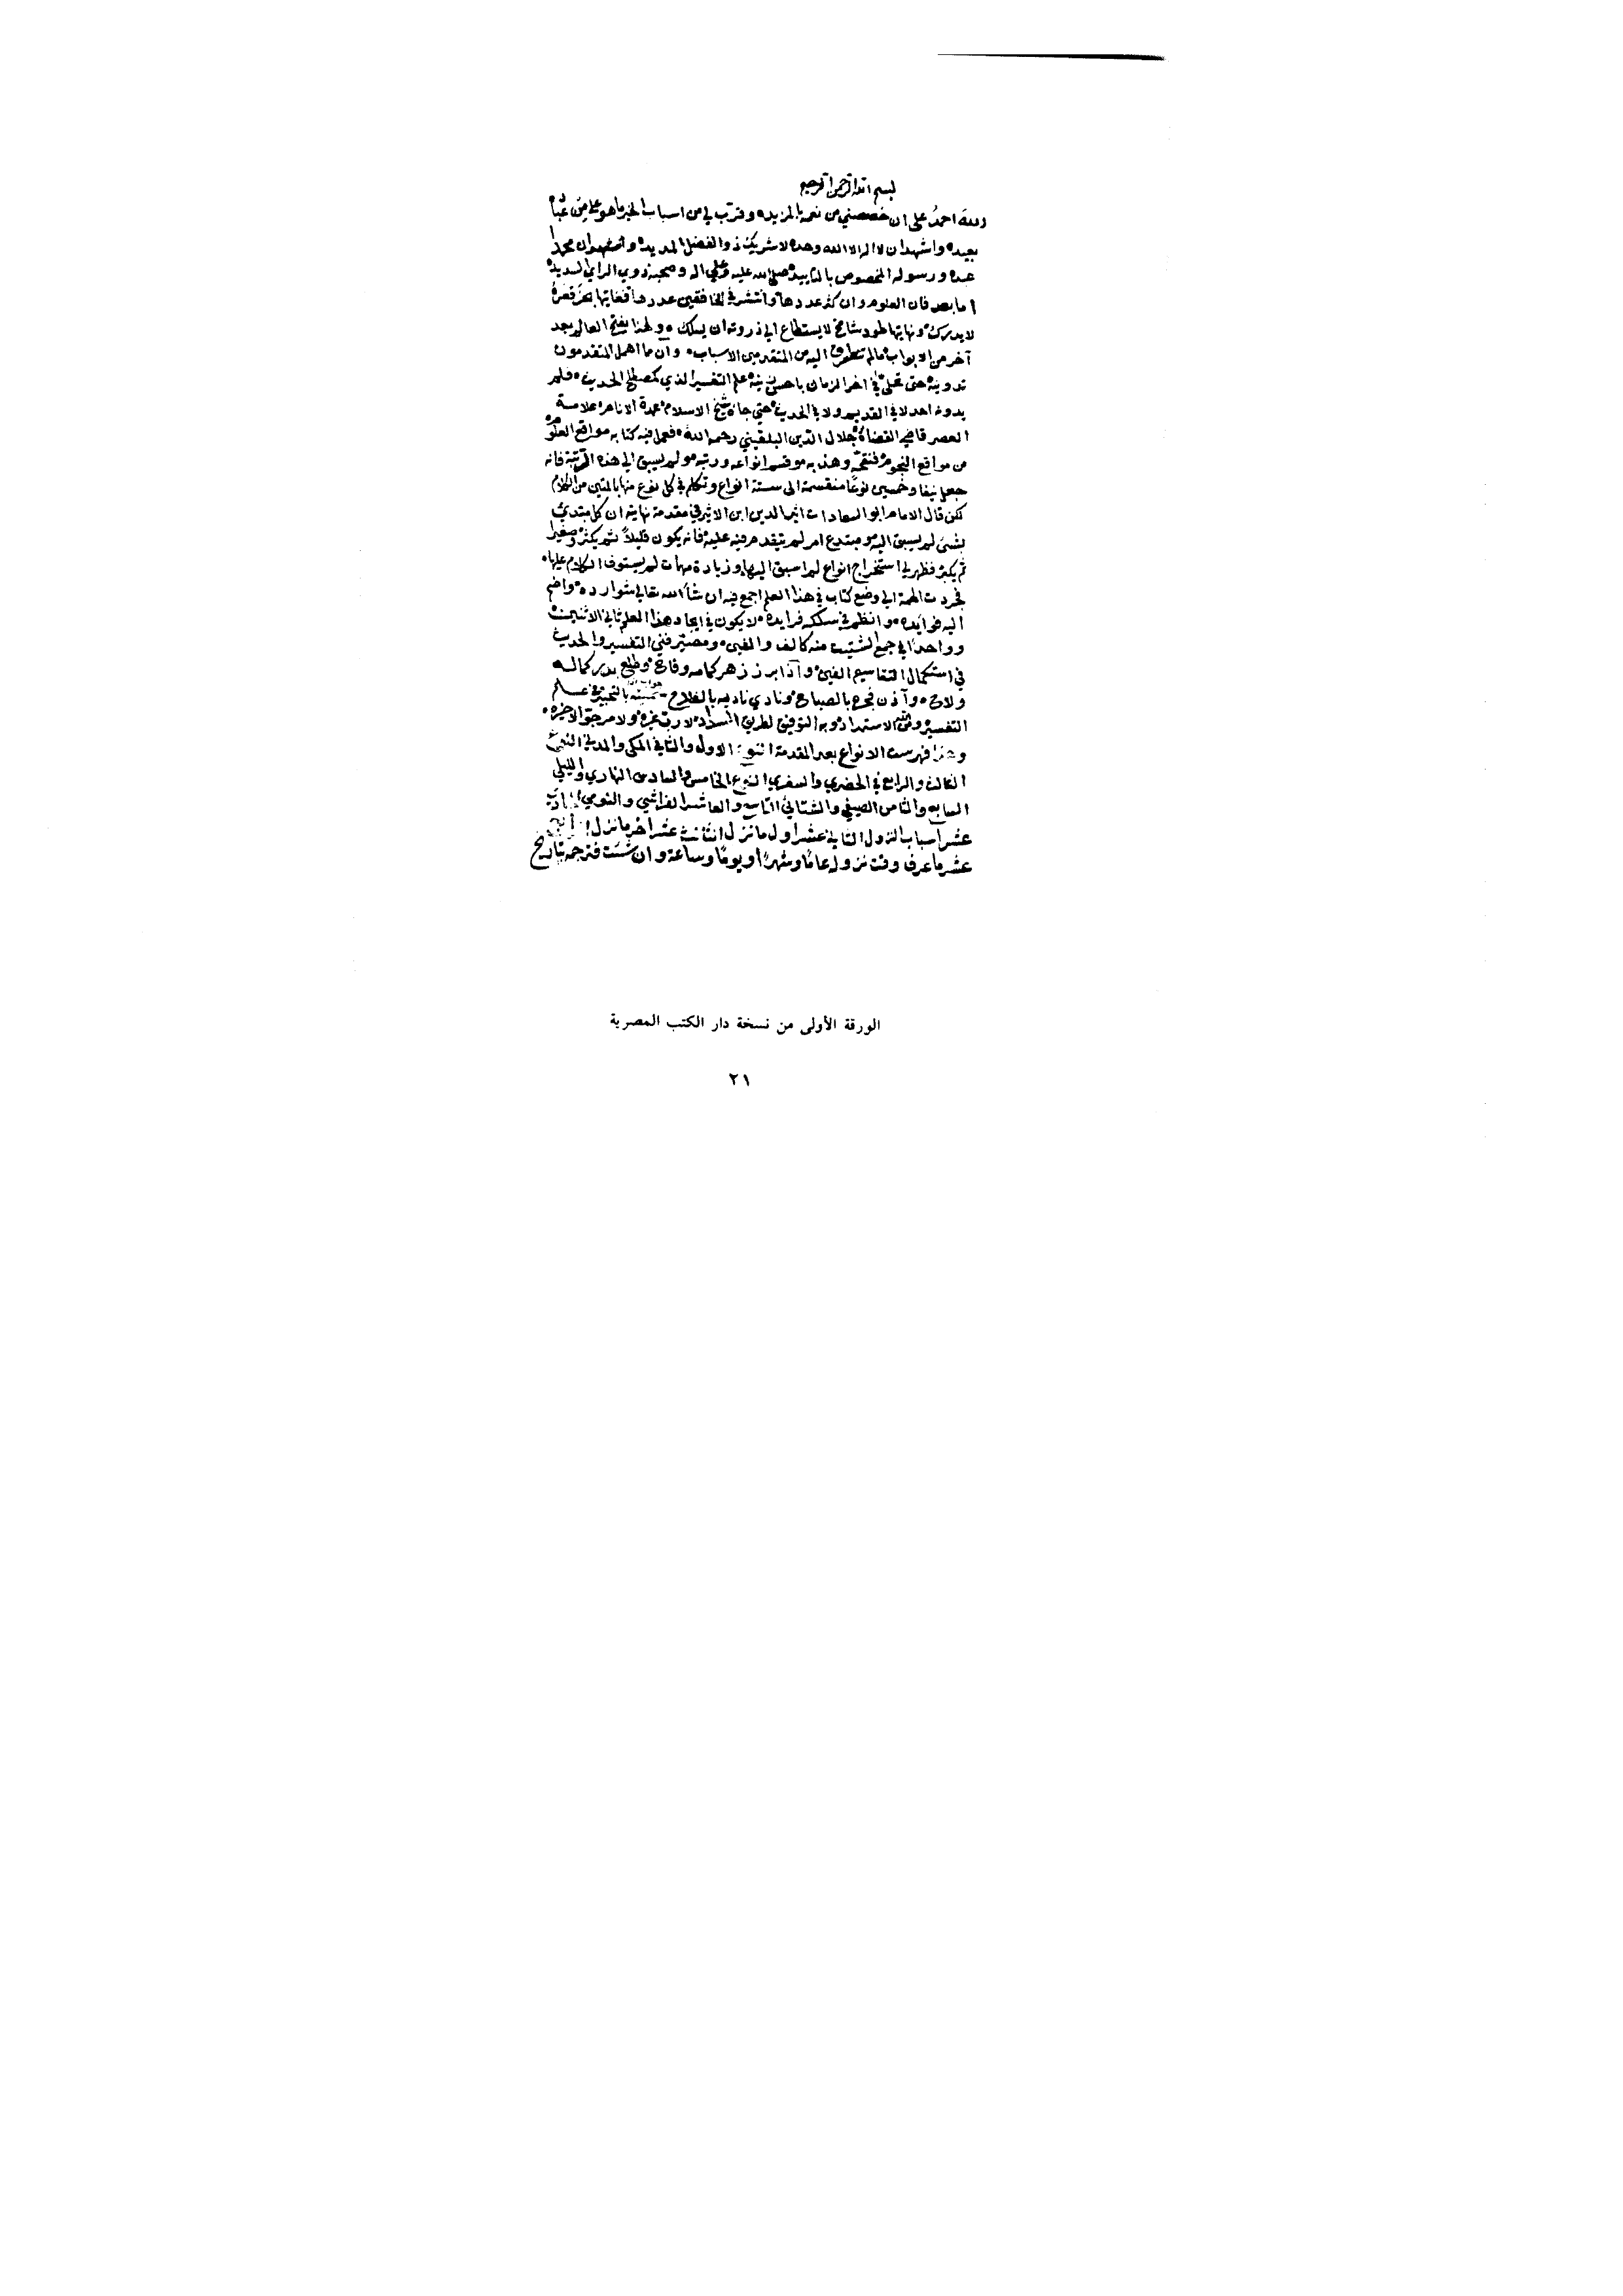 بسم الله الرحمن الرحيم
الله احمد على ان خصصني من نعمه بالمزيد وقرب لي من اسباب الخير ما هو على من
بعيد واشهد ان لا اله الا الله وحده لا شريك ذو الفضل المديد واشهد ان محمدا
عبده ورسوله المخصوص بالتاييد صلى الله عليه وعلى اله وصحبه ذوي الراي السديد
اما بعد فان العلوم وان كثر عددها وانتشر في الخافقين مددها فغايتها بحر قعره
لا يدرك ونهايتها طود شامخ لا يستطاع الى ذروته ان يسلك ولهذا يفتح العالم بعد
آخر من الابواب ما لم تتطرق اليه من المتقدمين الاسباب وان مما اهمل المتقدمون
تدوينه حتى تحلى في اخر الزمان باحسن زينة علم التفسير الذي كمصطلح الحديث فلم
يدونه احد لا في القديم ولا في الحديث حتى جاء شيخ الاسلام عمدة الانام علامة
العصر قاضي القضاة جلال الدين البلقيني رحمه الله فعمل فيه كتابه مواقع العلوم
من مواقع النجوم فنقحه وهذبه وقسم انواعه ورتبه ولم يسبق الى هذه المرتبة فانه
جعله نيفا وخمسين نوعا منقسمة الى ستة انواع وتكلم في كل نوع منها بالمتين من الكلام
لكن قال الامام ابو السعادات اثير الدين ابن الاثير في مقدمة نهايته ان كل مبتدئ
بشي لم يسبق اليه ومبتدع امر لم يتقدم فيه عليه فانه يكون قليلا ثم يكثر وصغيرا
ثم يكبر فظهر لي استخراج انواع لم اسبق اليها وزيادة مهمات لم يستوف الكلام عليها
فجردت الهمة الى وضع كتاب في هذا العلم اجمع فيه ان شاء الله تعالى شوارده واضم
اليه فوايده وانظم في سلكه فرايده لاكون في ايجاد هذا العلم ثاني الاثنين
وواحدا في جمع الشتيت منه كالف والفين ومصير فني التفسير والحديث
في استكمال التقاسيم الفين واذا برز زهر كمامه وفاح وطلع بدر كماله
ولاح وآذن فجره بالصباح ونادى ناديه بالفلاح سميته بالتحبير في علم
التفسير ومن الله الاستمداد وبه التوفيق لطريق السداد لا رب غيره ولا مرجو الا خيره
وهذا فهرست الانواع بعد المقدمة النوع الاول والثاني المكي والمدني النوع
الثالث والرابع في الحضري والسفري النوع الخامس والسادس النهاري والليلي
السابع والثامن الصيفي والشتائي التاسع والعاشر الفراشي والنومي الحادي
عشر اسباب النزول الثاني عشر اول ما نزل الثالث عشر اخر ما نزل
عشر ما عرف وقت نزوله عاما وشهرا ويوما وساعة وان شئت فترجمه بتاريخ
الورقة الأولى من نسخة دار الكتب المصرية
٢١